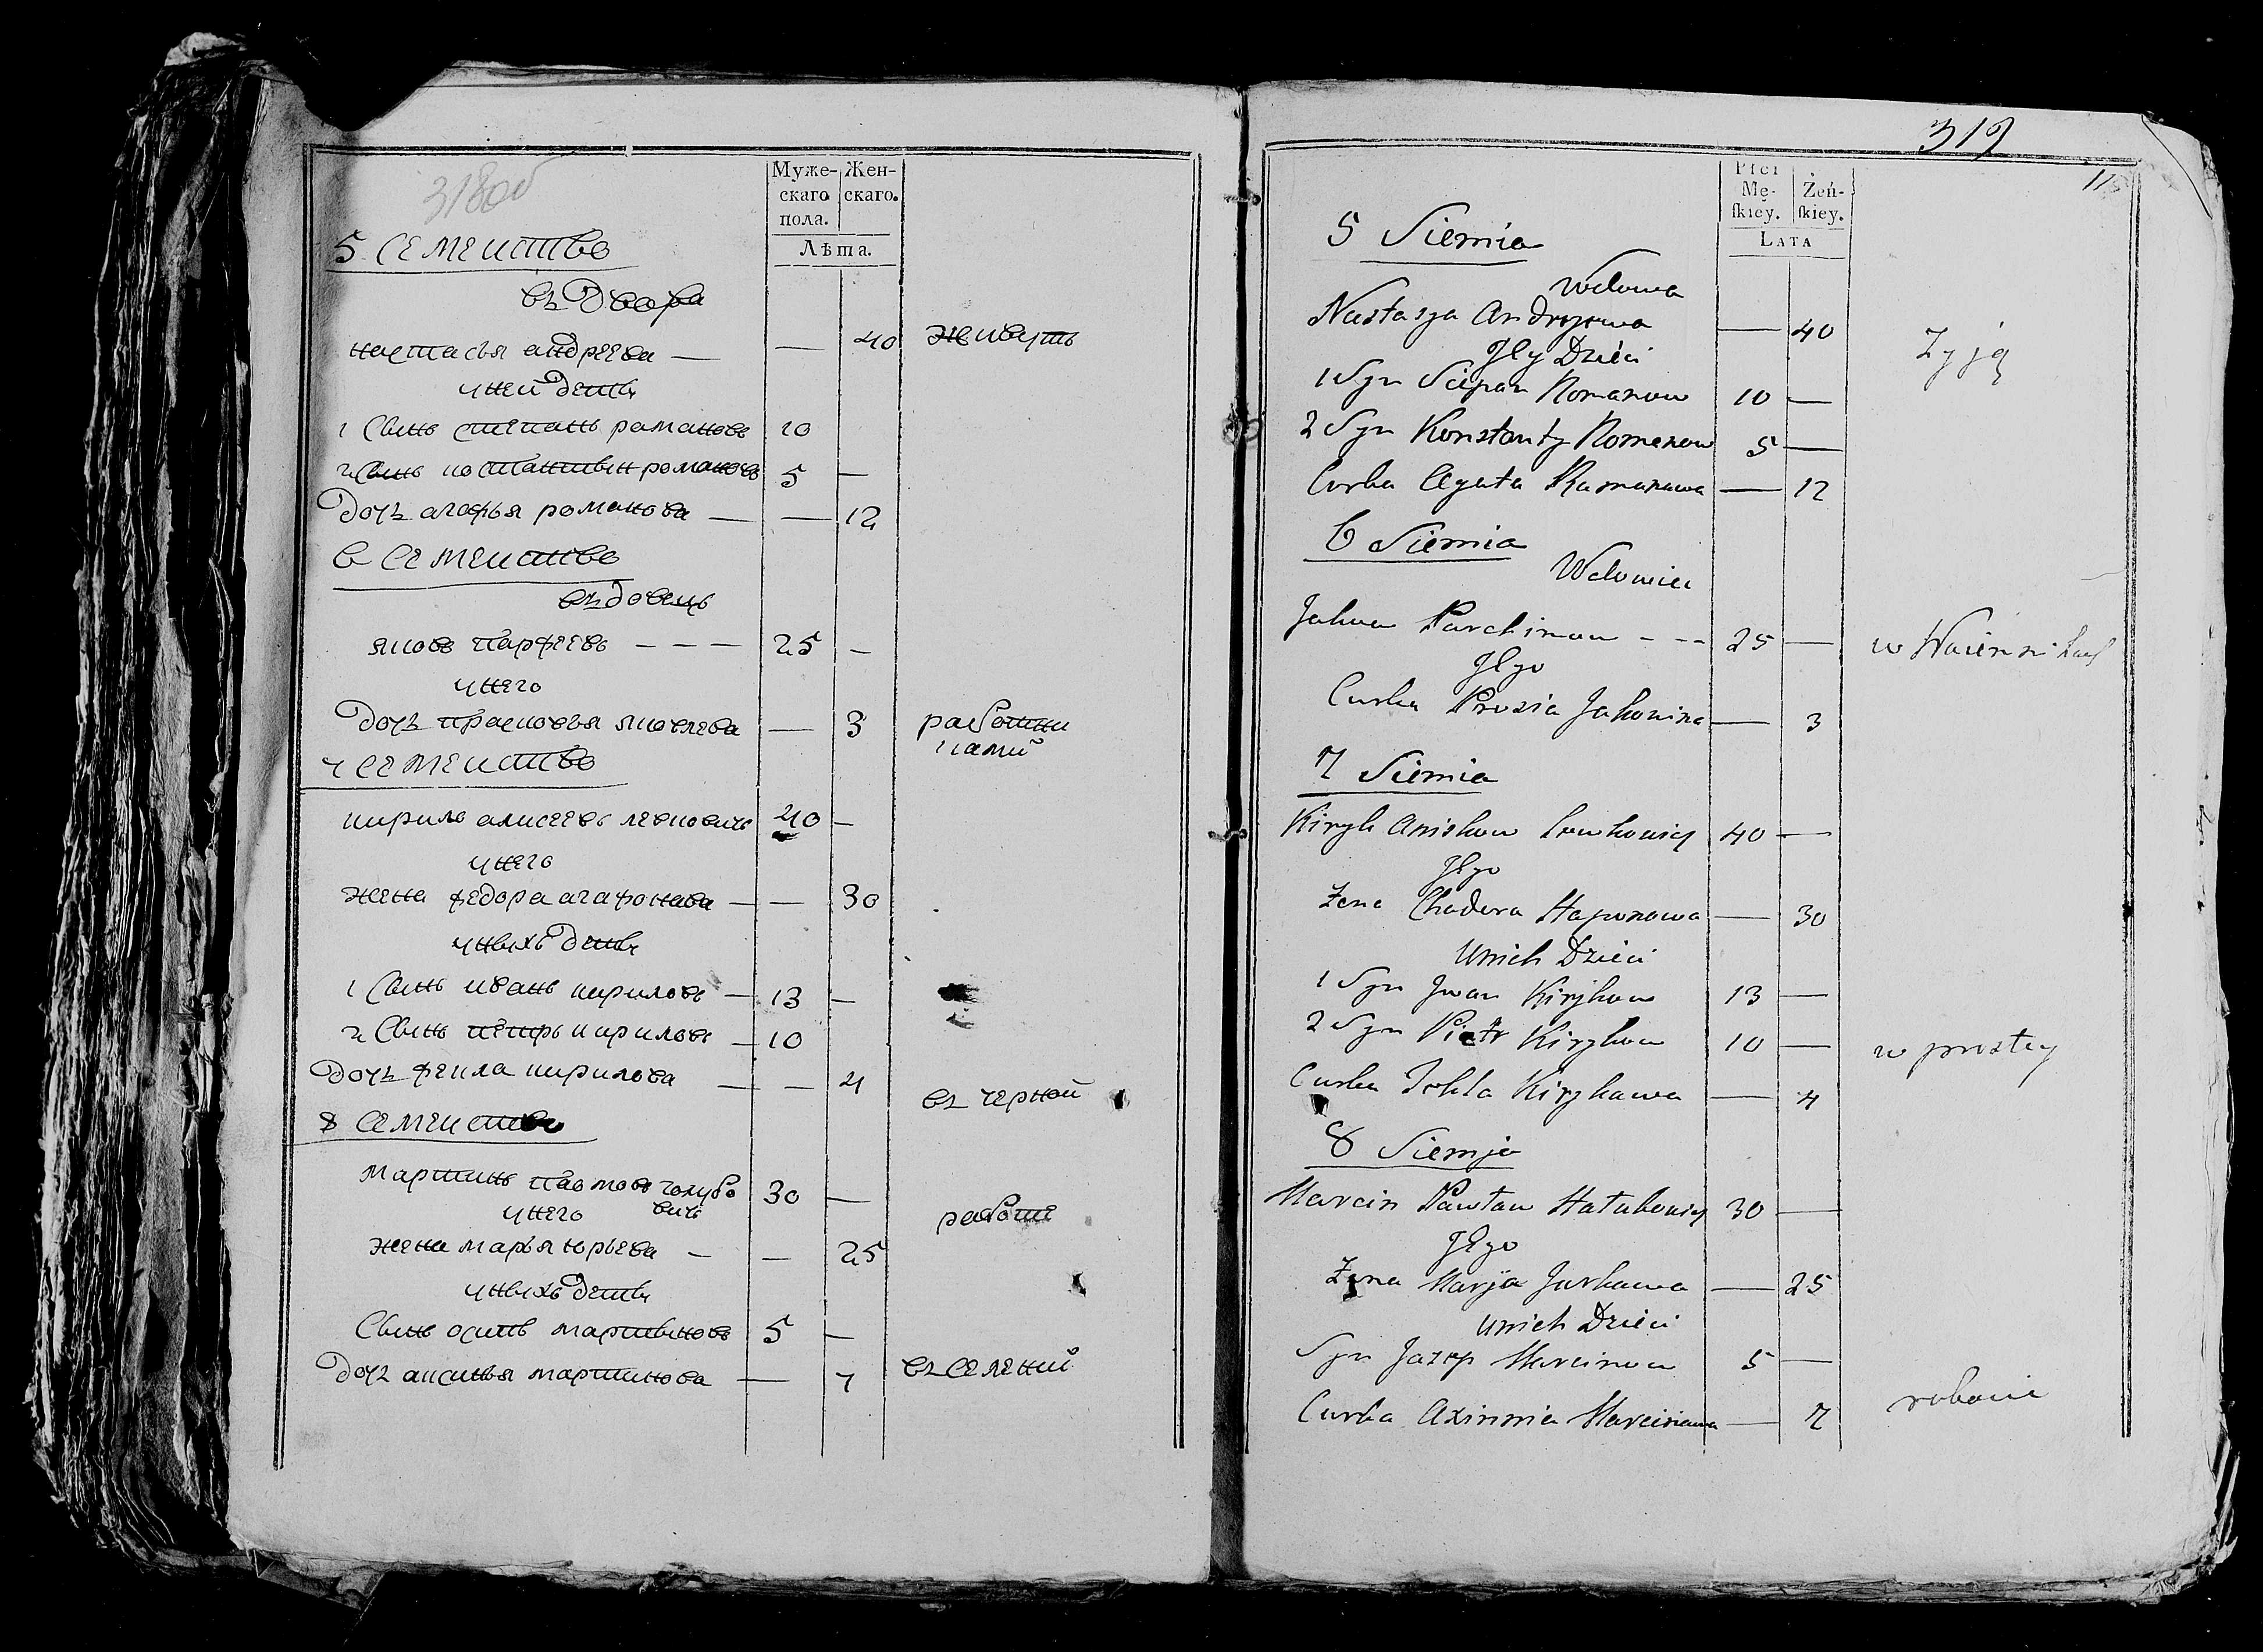 318об
Муже-
скаго
пола.
Жен-
скаго.
Лѣта.
5 Семеиство
въдвора
настасья андреева — — 40 живуть
унеи дети
1 Свинь степань романовъ 10
2 Свинь костантын романовъ 5 —
дочъ агафья романова — — 12
6 Семеиство
въдовець
яковъ парфеевъ - - - 25 —
унего
дочъ прасковья яковлева — 3 работни
ками
7 Семеиство
кирило алисеевъ левковичь 40 —
унего
жена федора агафонава — — 30
унихъ дети
1 Свинь ивань кириловъ — 13 —
2 Свинь петръ кириловъ — 10
дочъ фекла кирилова — — 4
въ черной
8 Семеиство
мартинь павловъ голубо
вичь 30 —
унего
работе
жена марья юрьева — — 25
унихъ дети
Свинь осипъ мартиновъ 5 —
дочъ аксинья мартинова — 7 въселении
319
11
Płci
Mę-
ſkiey.
Żeń-
ſkiey.
Lata
5 Siemia
Wdowa
Nastazya Andrejewa — 40 Zyją
Jey Dzieci
1 Syn Sciepan Romanow 10 —
2 Syn Konstanty Romanow 5 —
Curka Agata Ramanawa — 12
6 Siemia
Wdowiec
Jakow Parchimow - - - 25 —
Jego
Curka Prosia Jakowina — 3
7 Siemia
Kiryło Aniskow Lewkowicz 40 —
Jego
Zena Chadora Haponawa — 30
Unich Dzieci
1 Syn Jwan Kiryłow 13 —
2 Syn Piotr Kiryłow 10 — w prostey
Curka Tekla Kiryławа — 4
8 Siemja
Marcin Pawłow Hałubowicz 30 —
Jego
Zena Marja Jurkawa — 25
Unich Dzieci
Syn Jazep Marcinow 5 —
Curka Axinnia Marcinawa — 7 robocie